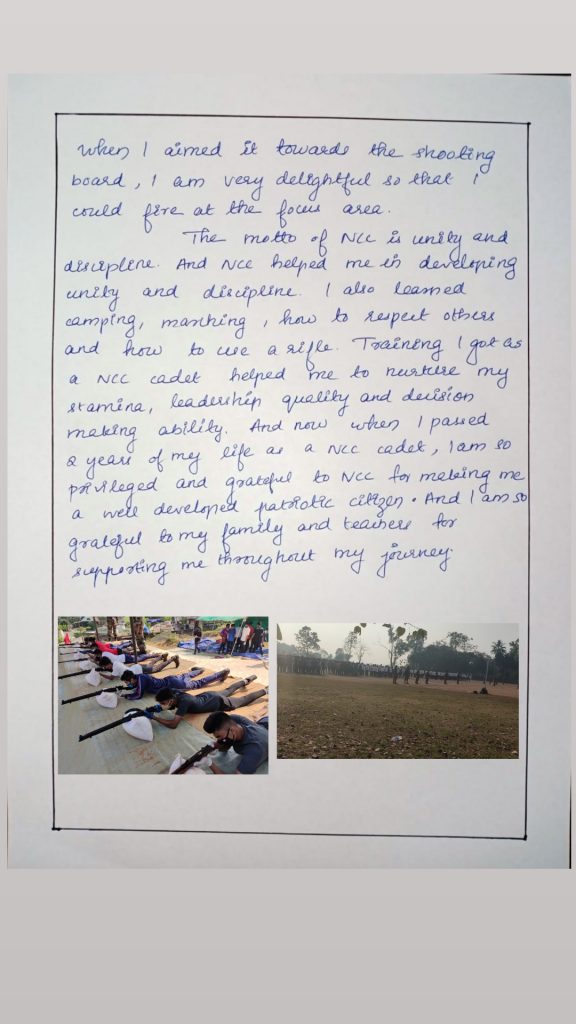 When I aimed it towards the shooting
board, I am very delightful so that I
could fire at the focus area.
The motto of NCC is unity and
discipline. And NCC helped me in developing
unity and discipline. I also learned
camping, marching, how to respect others
and how to use a rifle. Training I got as
a NCC cadet helped me to nurture my
stamina, leadership quality and decision
making ability. And now when I passed
2 years of my life as a NCC cadet, I am so
privileged and grateful to NCC for making me
a well developed patriotic citizen. And I am so
grateful to my family and teachers for
supporting me throughout my journey.